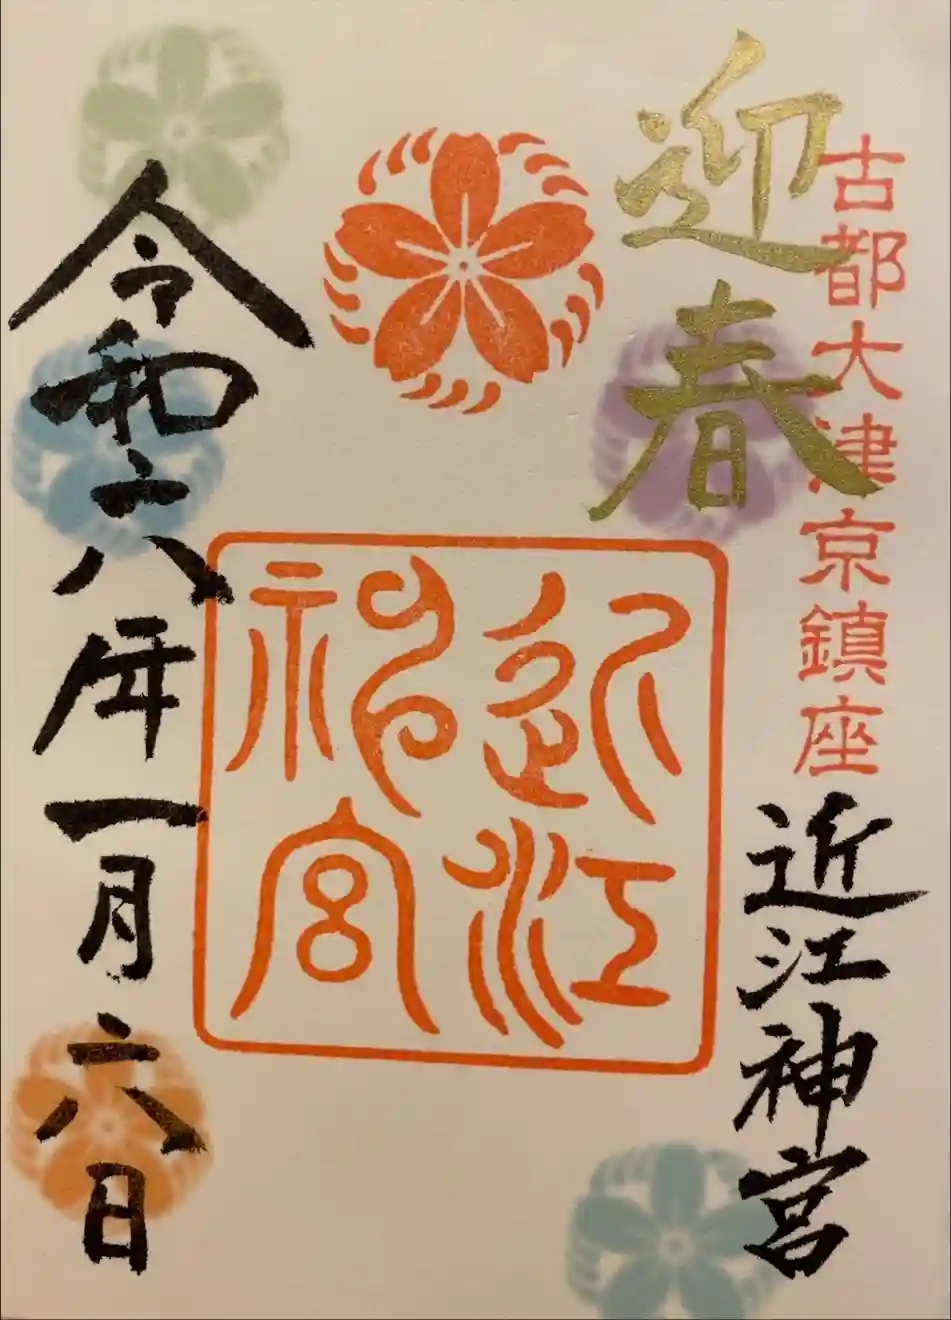 古都大津京鎮座
近江神宮
迎春
近江
神宮
令和六年一月六日